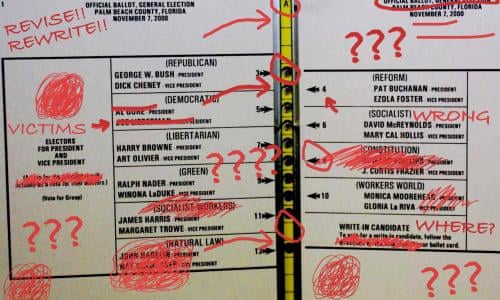 1
OFFICIAL BALLOT, GENERAL ELECTION
PALM BEACH COUNTY, FLORIDA
NOVEMBER 7, 2000
REVISE!!
REWRITE!!
VICTIMS
ELECTORS
FOR PRESIDENT
AND
VICE PRESIDENT
(Vote for Group)
???
(REPUBLICAN)
GEORGE W. BUSH - PRESIDENT
DICK CHENEY - VICE PRESIDENT
3
(DEMOCRATIC)
AL GORE - PRESIDENT
VICE PRESIDENT
5
(LIBERTARIAN)
HARRY BROWNE - PRESIDENT
ART OLIVIER - VICE PRESIDENT
7
(GREEN)
RALPH NADER - PRESIDENT
WINONA LaDUKE - VICE PRESIDENT
9
????
(SOCIALIST WORKERS)
JAMES HARRIS - PRESIDENT
MARGARET TROWE - VICE PRESIDENT
11
(NATURAL LAW)
JOHN HAGELIN - PRESIDENT
VICE PRESIDENT
13
A
OFFICIAL BALLOT, GENERAL ELECTION
PALM BEACH COUNTY, FLORIDA
NOVEMBER 7, 2000
???
(REFORM)
4
PAT BUCHANAN - PRESIDENT
EZOLA FOSTER - VICE PRESIDENT
(SOCIALIST)
WRONG
6
DAVID McREYNOLDS - PRESIDENT
MARY CAL HOLLIS - VICE PRESIDENT
(CONSTITUTION)
PRESIDENT
J. CURTIS FRAZIER - VICE PRESIDENT
(WORKERS WORLD)
10
MONICA MOOREHEAD - PRESIDENT
GLORIA La RIVA - VICE PRESIDENT
WRITE-IN CANDIDATE
WHERE?
To vote for a write-in candidate, follow the
your ballot card.
???